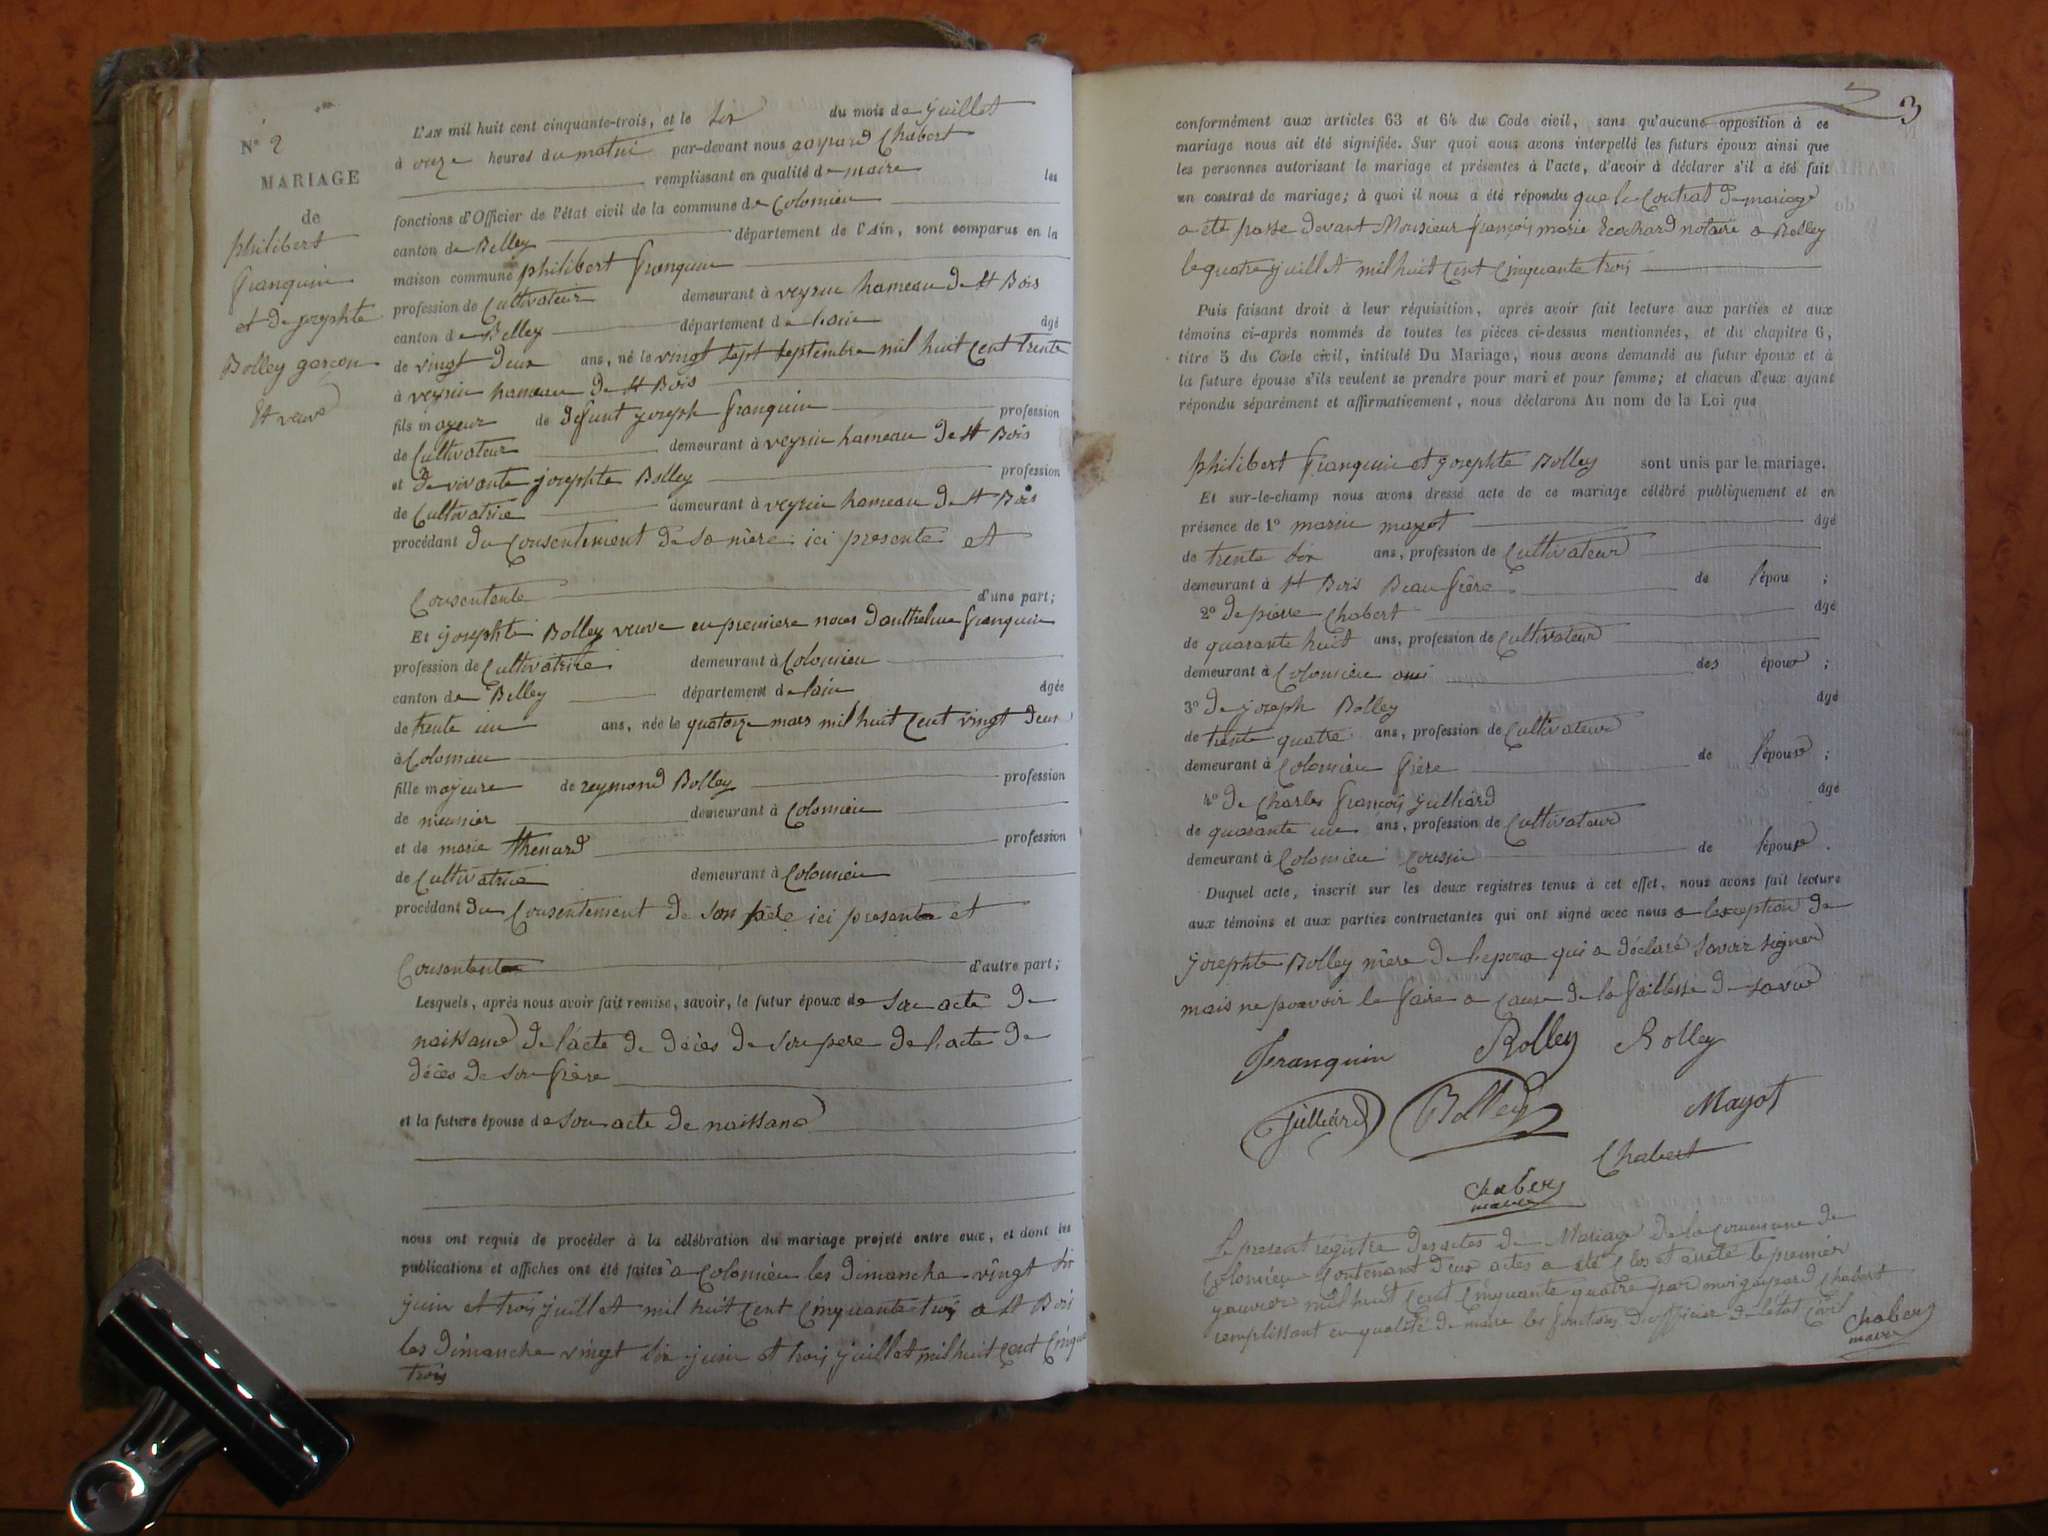 N° 2
MARIAGE
de
philibert
franquin
et de josephte
Bolley garcon
Et veuve
L'AN mil huit cent cinquante-trois, et le six du mois de juillet
à onze heures du matin par-devant nous gaspard Chabert
remplissant en qualité de maire les
fonctions d'Officier de l'état civil de la commune de Colomieu
canton de Belley département de l'Ain, sont comparus en la
maison commune philibert franquin
profession de Cultivateur demeurant à veyrin hameau de St Bois
canton de Belley département de lain âgé
de vingt deux ans, né le vingt sept septembre mil huit Cent trente
à veyrin hameau de St Bois
fils mayeur de defunt joseph franquin profession
de Cultivateur demeurant à veyrin hameau de St Bois
et de vivante josephte Bolley profession
de Cultivatrice demeurant à veyrin hameau de St Bois
procédant du Consentement de sa mère ici presente et
Consentente d'une part;
Et josephte Bolley veuve en premiere noces danthelme franquin
profession de Cultivatrice demeurant à Colomieu
canton de Belley département de lain âgée
de trente un ans, née le quatorze mars mil huit Cent vingt deux
à Colomieu
fille majeure de reymond Bolley profession
de meunier demeurant à Colomieu
et de marie thenard profession
de Cultivatrice demeurant à Colomieu
procédant du Consentement de son père ici present et
Consentent d'autre part;
Lesquels, après nous avoir fait remise, savoir, le futur époux de son acte de
naissance de l'acte de décès de son pere de l'acte de
décès de son frère
et la future épouse de son acte de naissance
nous ont requis de procéder à la célébration du mariage projeté entre eux, et dont les
publications et affiches ont été faites a Colomieu les dimanche vingt six
juin et trois juillet mil huit Cent Cinquante trois a St Bois
les dimanche vingt six juin et trois juillet mil huit Cent
trois
3
conformément aux articles 63 et 64 du Code civil, sans qu'aucune opposition à ce
mariage nous ait été signifiée. Sur quoi nous avons interpellé les futurs époux ainsi que
les personnes autorisant le mariage et présentes à l'acte, d'avoir à déclarer s'il a été fait
un contrat de mariage; à quoi il nous a été répondu que le Contrat de mariage
a été passe devant Monsieur françois marie Ecochard notaire a Belley
le quatre juillet mil huit Cent Cinquante trois
Puis faisant droit à leur réquisition, après avoir fait lecture aux parties et aux
témoins ci-après nommés de toutes les pièces ci-dessus mentionnées, et du chapitre 6,
titre 5 du Code civil, intitulé Du Mariage, nous avons demandé au futur époux et à
la future épouse s'ils veulent se prendre pour mari et pour femme; et chacun d'eux ayant
répondu séparément et affirmativement, nous déclarons Au nom de la Loi que
philibert franquin et josephte Bolley sont unis par le mariage.
Et sur-le-champ nous avons dressé acte de ce mariage célébré publiquement et en
présence de 1° marin mayot âgé
de trente six ans, profession de Cultivateur
demeurant à St Bois Beau frère de l'épou ;
2° de pierre Chabert âgé
de quarante huit ans, profession de Cultivateur
demeurant à Colomieu ami des époux ;
3° de joseph Bolley âgé
de trente quatre ans, profession de Cultivateur
demeurant à Colomieu frère de l'épouse ;
4° de Charles françois julliard âgé
de quarante un ans, profession de Cultivateur
demeurant à Colomieu Cousin de l'épouse .
Duquel acte, inscrit sur les deux registres tenus à cet effet, nous avons fait lecture
aux témoins et aux parties contractantes qui ont signé avec nous a lexception de
josephte Bolley mère de l'epoux qui a déclaré savoir signer
mais ne pouvoir le faire a Cause de la faiblesse de sa vue
Franquin Bolley Bolley
Julliard Bolley Mayot
Chabert
Chabert
maire
Le present régistre des actes de Mariage de la Commune de
Colomieu Contenant deux actes a été Clos et arrêté le premier
janvier mil huit Cent Cinquante quatre par moi gaspard Chabert
remplissant en qualité de maire les fonctions d'officier de l'état Civil
Chabert
maire